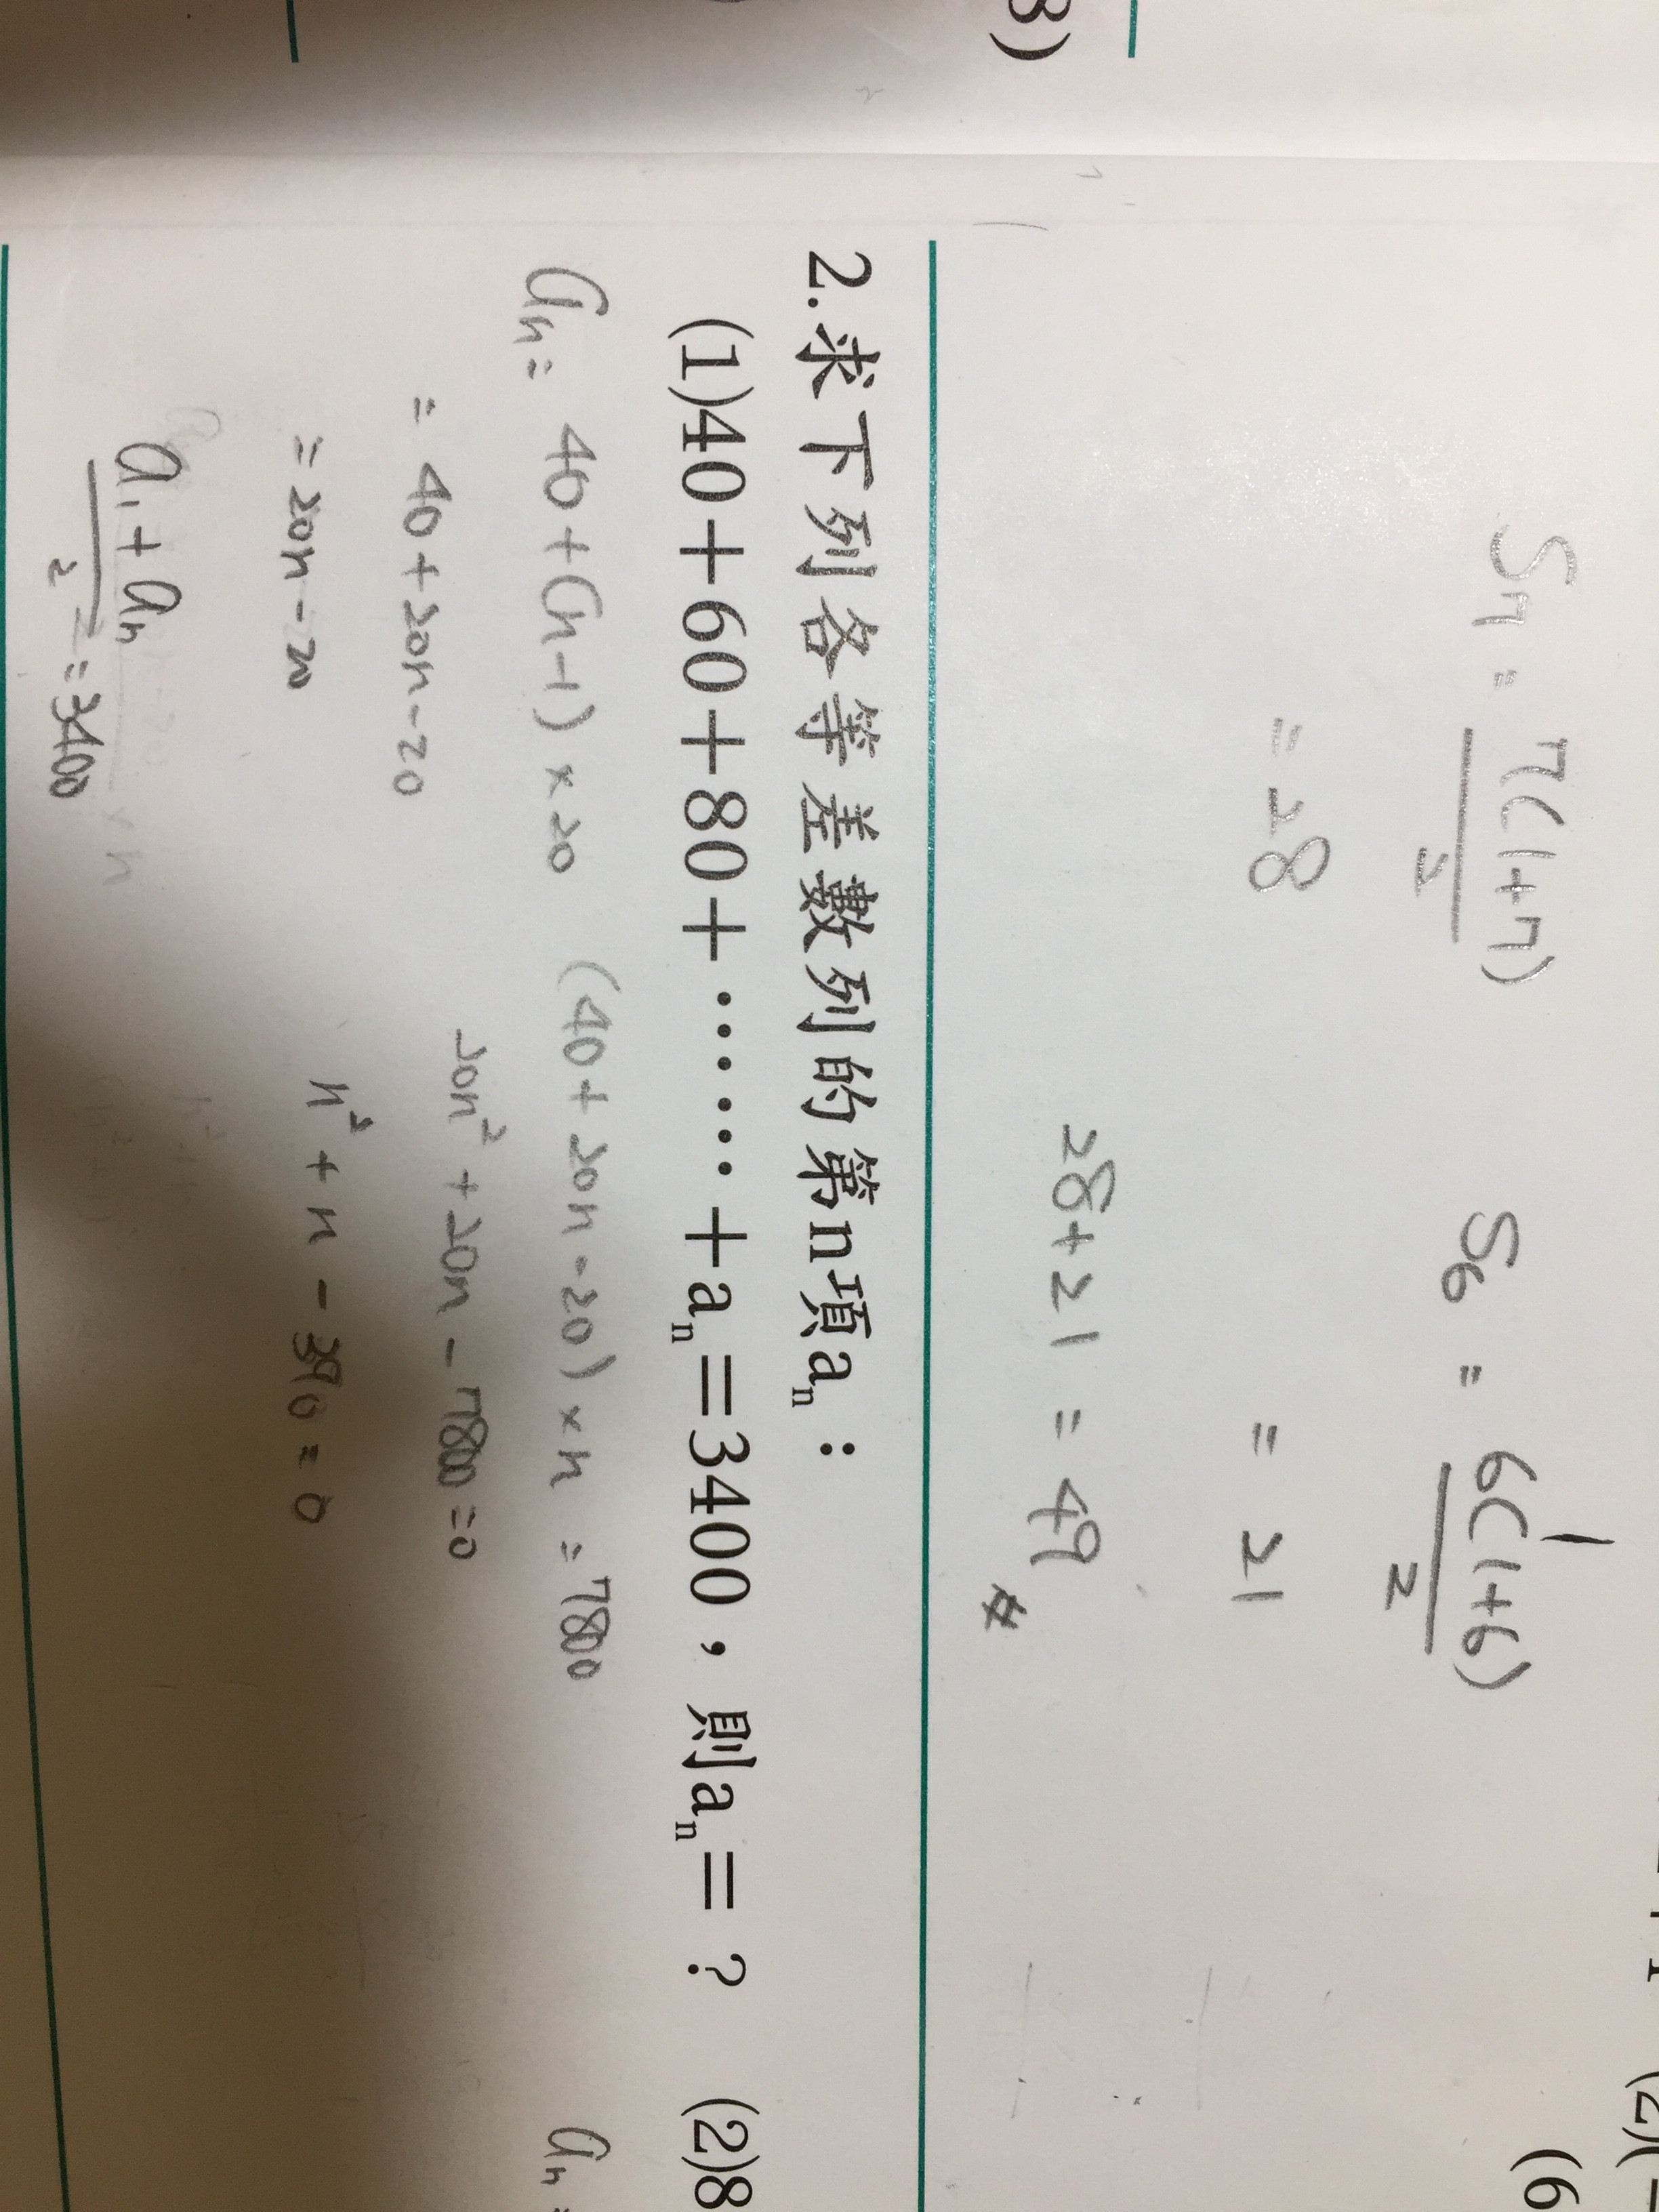 3)
S₇ = 7(1+7)/2
= 28
S₆ = 6(1+6)/2
= 21
28+21 = 49
(6
2.求下列各等差數列的第n項aₙ：
(1)40+60+80+……+aₙ=3400，則aₙ=？ (2)8
aₙ= 40+(n-1)×20
= 40+20n-20
= 20n-20
a₁+aₙ/2 =3400
(40+20n-20)×n =7800
20n²+20n-7800=0
n²+n-390=0
aₙ=